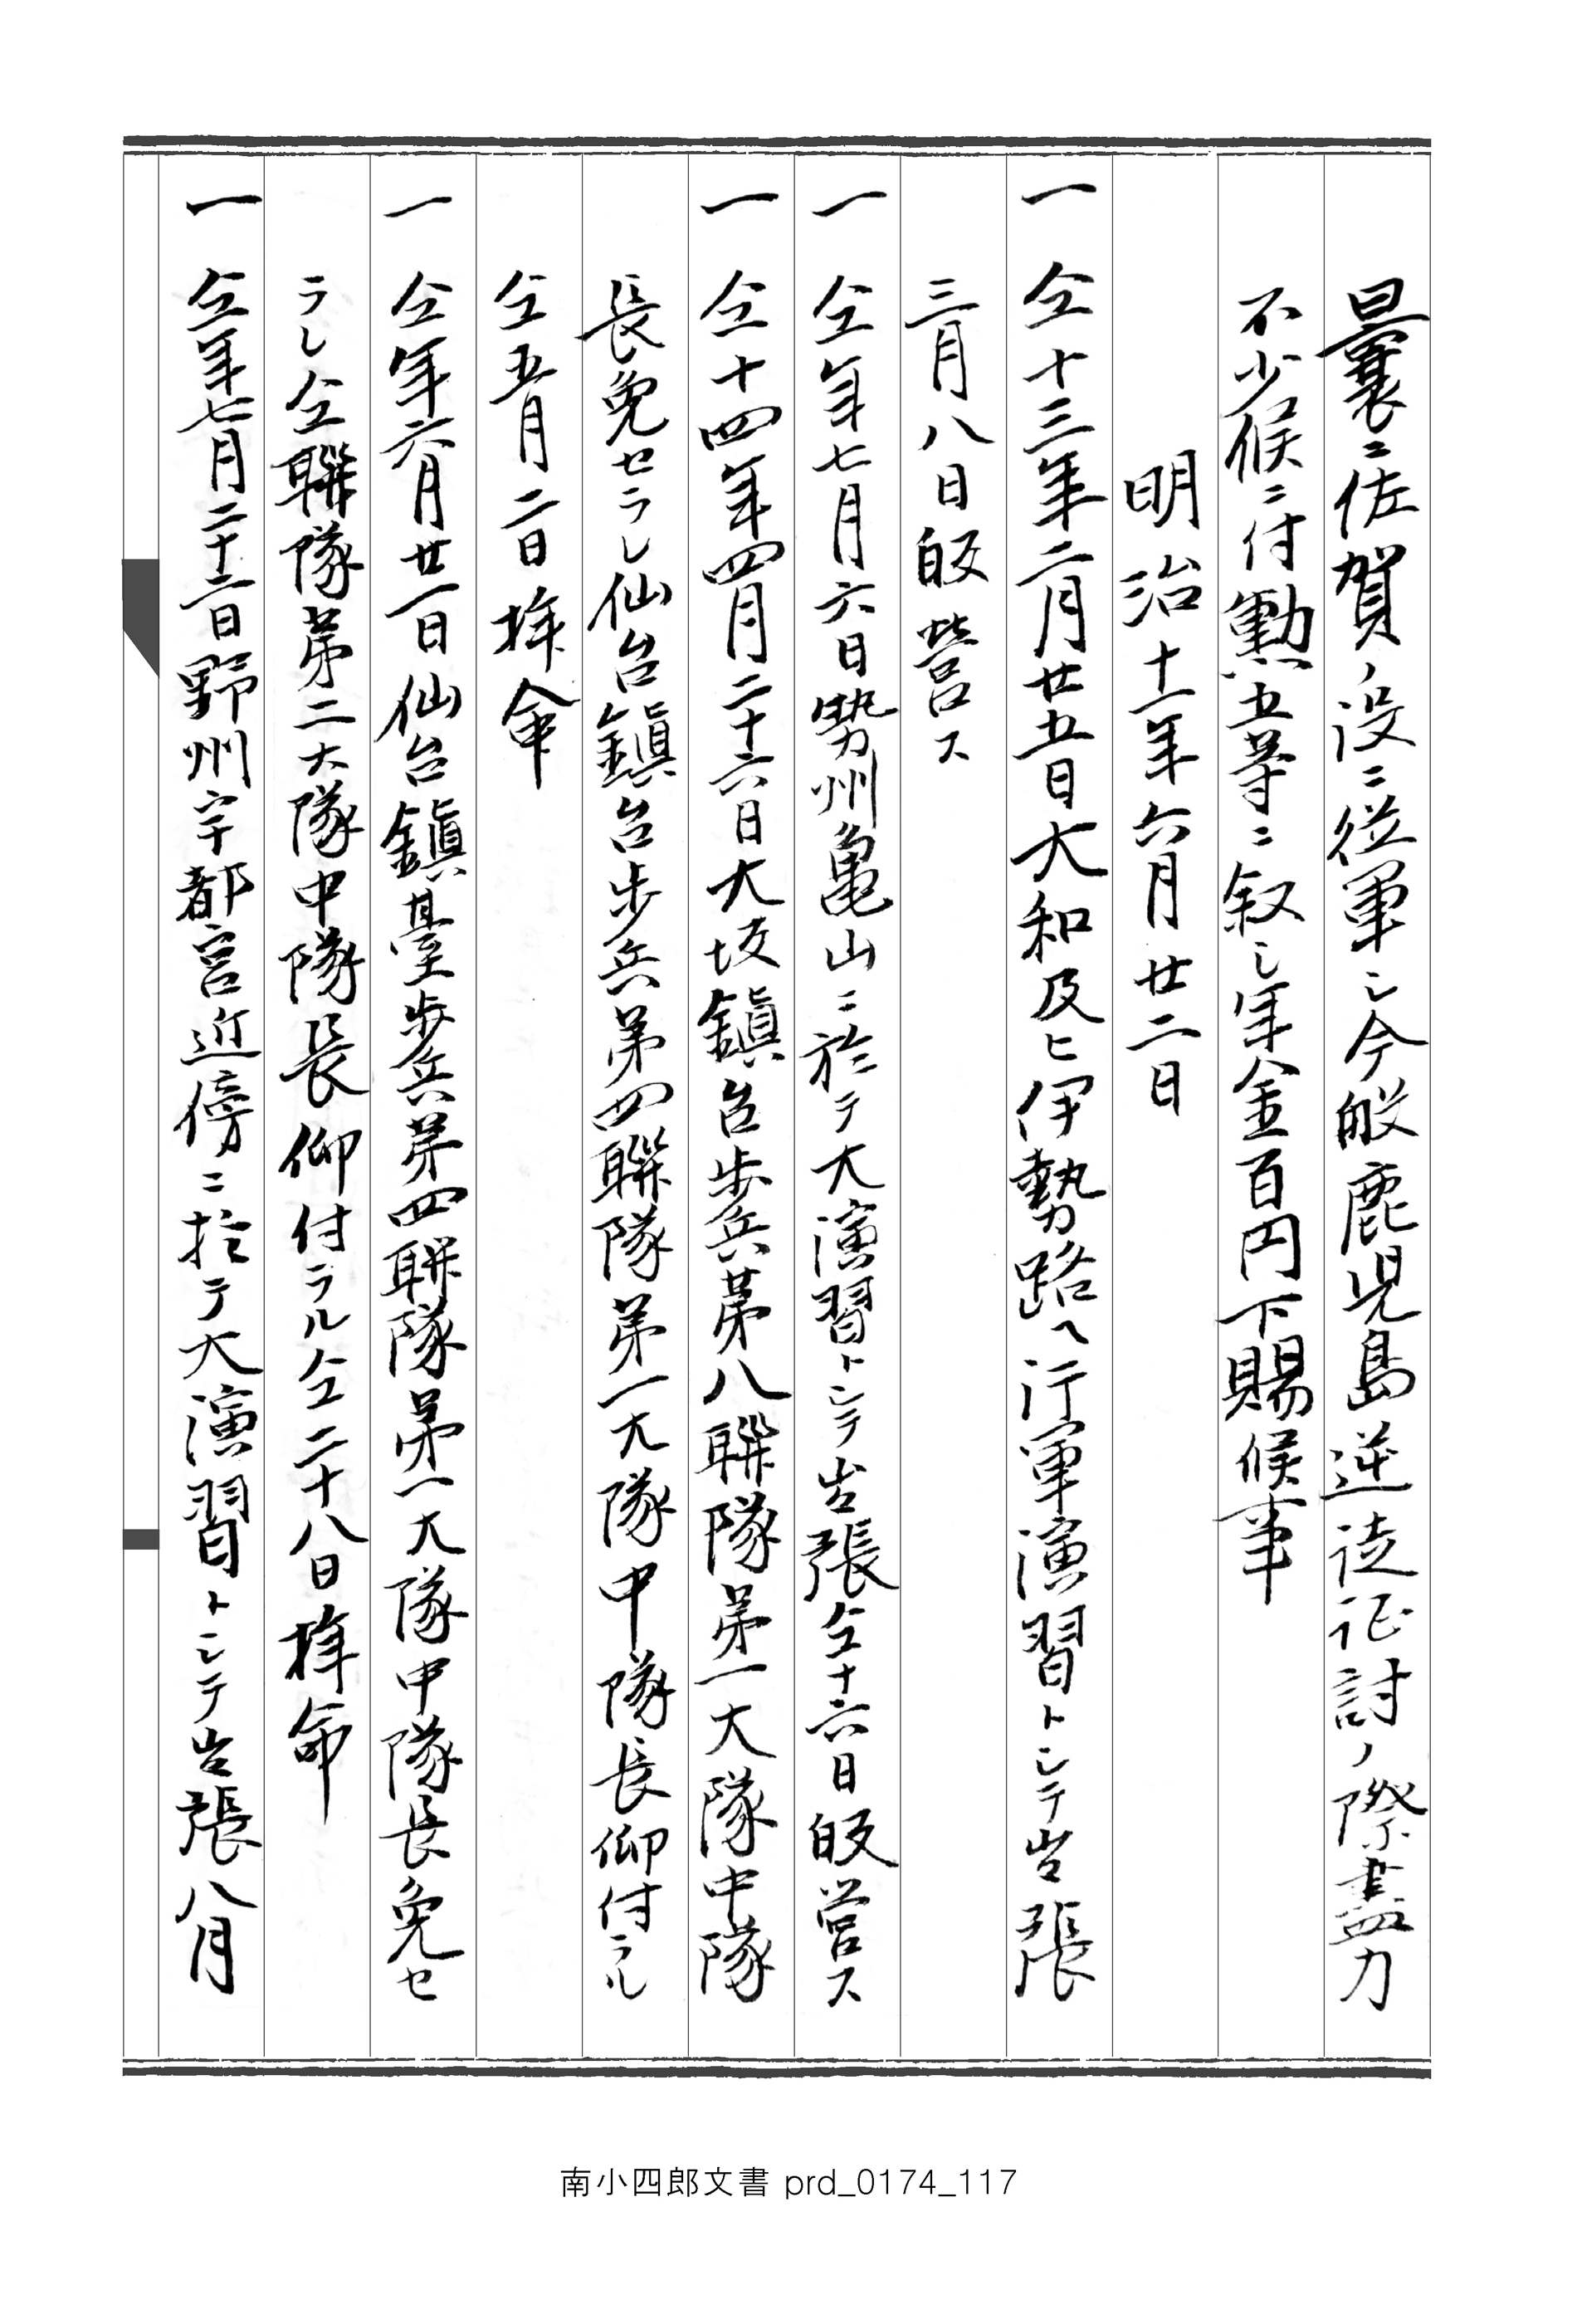 曩ニ佐賀ノ役ニ従軍シ今般鹿児島逆徒征討ノ際盡力
不少候ニ付勲五等ニ叙シ年金百円下賜候事
明治十一年六月廿二日
一 仝十三年二月廿五日大和及ヒ伊勢路ヘ行軍演習トシテ出張
三月八日皈営ス
一 仝年七月六日勢州亀山ニ於テ大演習トシテ出張仝十六日皈営ス
一 仝十四年四月二十六日大坂鎮台歩兵第八聯隊第一大隊中隊
長免セラレ仙台鎮台歩兵第四聯隊第一大隊中隊長仰付ラル
仝五月二日拝命
一 仝年六月廿一日仙台鎮臺歩兵第四聯隊第一大隊中隊長免セ
ラレ仝聯隊第二大隊中隊長仰付ラル仝二十八日拝命
一 仝年七月二十二日野州宇都宮近傍ニ於テ大演習トシテ出張八月
南小四郎文書 prd_0174_117